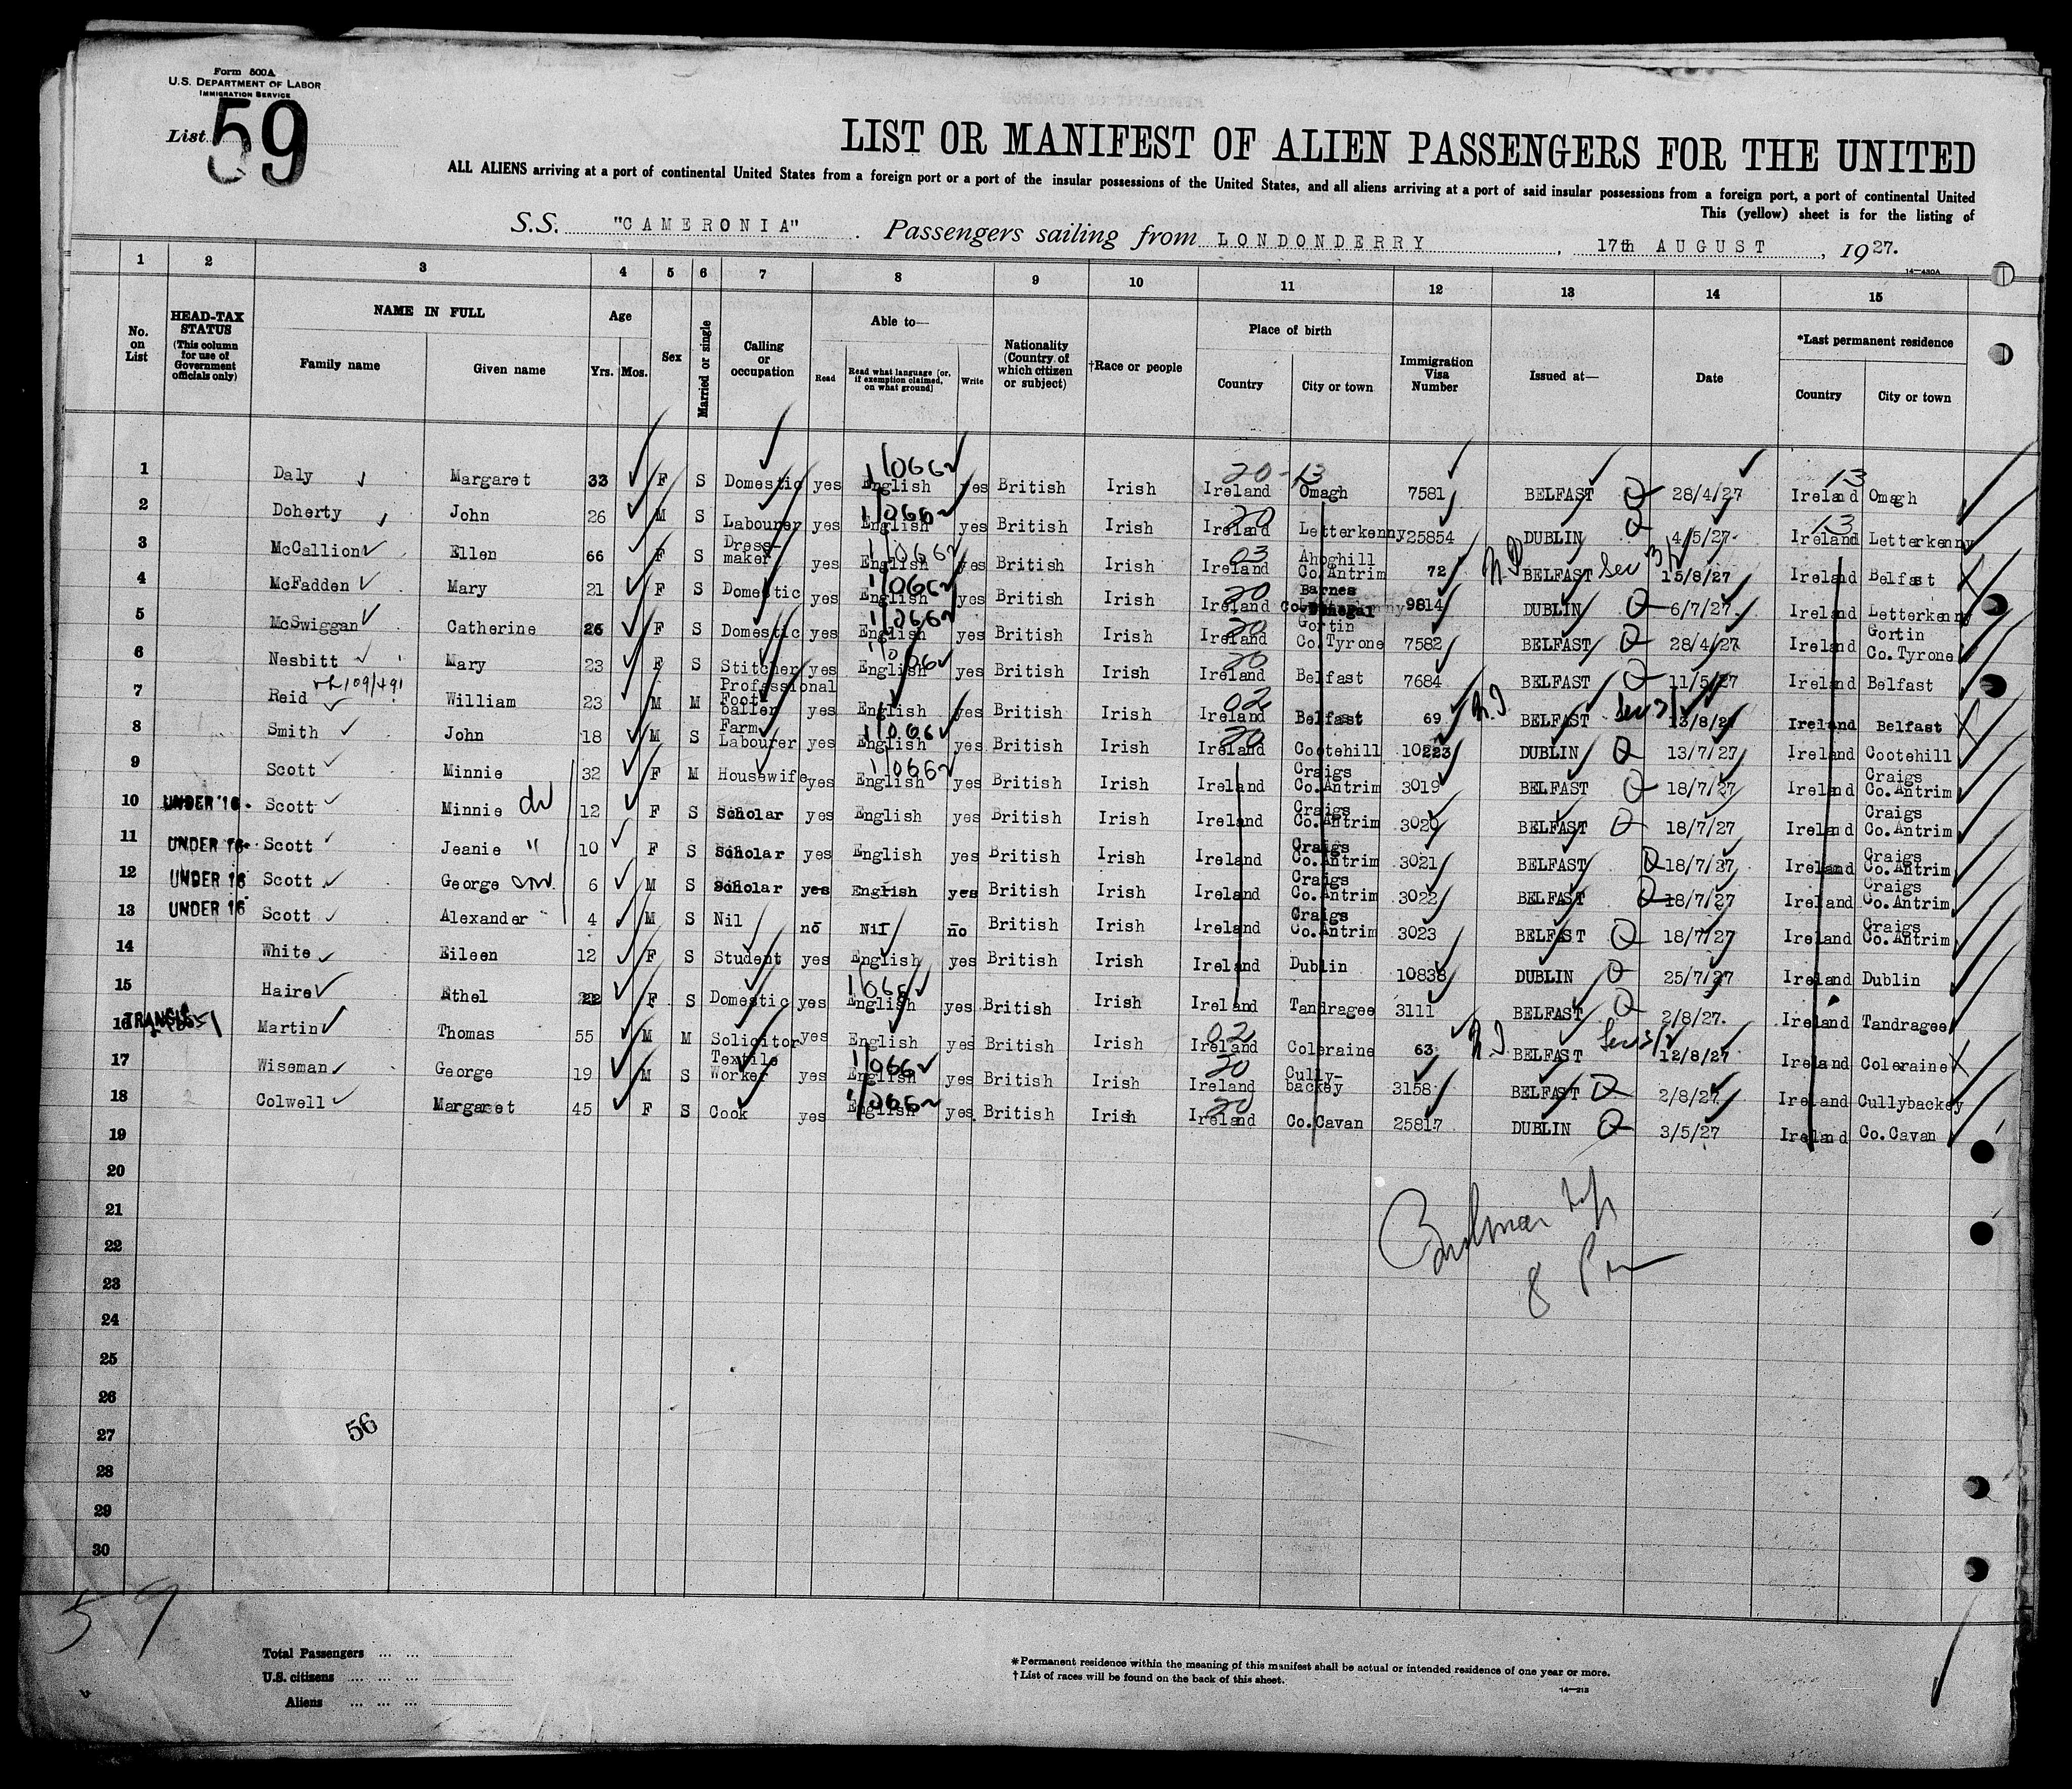 Form 500A
U.S. DEPARTMENT OF LABOR
IMMIGRATION SERVICE
List 59
LIST OR MANIFEST OF ALIEN PASSENGERS FOR THE UNITED
ALL ALIENS arriving at a port of continental United States from a foreign port or a port of the insular possessions of the United States, and all aliens arriving at a port of said insular possessions from a foreign port, a port of continental United
This (yellow) sheet is for the listing of
S.S. "CAMERONIA" Passengers sailing from LONDONDERRY, 17th AUGUST, 1927.
14—430A
1 2 3 4 5 6 7 8 9 10 11 12 13 14 15
No. on List
HEAD-TAX STATUS (This column for use of Government officials only)
NAME IN FULL
Family name Given name
Age
Yrs. Mos.
Sex
Married or single
Calling or occupation
Able to—
Read Read what language [or, if exemption claimed, on what ground] Write
Nationality (Country of which citizen or subject)
†Race or people
Place of birth
Country City or town
Immigration Visa Number
Issued at—
Date
*Last permanent residence
Country City or town
1 Daly Margaret 33 F S Domestic yes English yes British Irish Ireland Omagh 7581 BELFAST 28/4/27 Ireland Omagh
2 Doherty John 26 M S Labourer yes English yes British Irish Ireland Letterkenny 25854 DUBLIN 4/5/27 Ireland Letterkenny
3 McCallion Ellen 66 F S Dress-maker yes English yes British Irish Ireland Ahoghill Co.Antrim 72 BELFAST Sec 3/2 15/8/27 Ireland Belfast
4 McFadden Mary 21 F S Domestic yes English yes British Irish Ireland Barnes Co.Donegal 9814 DUBLIN 6/7/27. Ireland Letterkenny
5 McSwiggan Catherine 26 F S Domestic yes English yes British Irish Ireland Gortin Co.Tyrone 7582 BELFAST 28/4/27 Ireland Gortin Co.Tyrone
6 Nesbitt Mary 23 F S Stitcher yes English yes British Irish Ireland Belfast 7684 BELFAST 11/5/27 Ireland Belfast
7 Reid William 23 M M Professional Foot-baller yes English yes British Irish Ireland Belfast 69 BELFAST 13/8/27 Ireland Belfast
8 Smith John 18 M S Farm Labourer yes English yes British Irish Ireland Cootehill 10223 DUBLIN 13/7/27 Ireland Cootehill
9 Scott Minnie 32 F M Housewife yes English yes British Irish Ireland Craigs Co.Antrim 3019 BELFAST 18/7/27 Ireland Craigs Co.Antrim
10 UNDER 16 Scott Minnie 12 F S Scholar yes English yes British Irish Ireland Craigs Co.Antrim 3020 BELFAST 18/7/27 Ireland Craigs Co.Antrim
11 UNDER 16 Scott Jeanie " 10 F S Scholar yes English yes British Irish Ireland Craigs Co.Antrim 3021 BELFAST 18/7/27 Ireland Craigs Co.Antrim
12 UNDER 16 Scott George 6 M S Scholar yes English yes British Irish Ireland Craigs Co.Antrim 3022 BELFAST 18/7/27 Ireland Craigs Co.Antrim
13 UNDER 16 Scott Alexander " 4 M S Nil no Nil no British Irish Ireland Craigs Co.Antrim 3023 BELFAST 18/7/27 Ireland Craigs Co.Antrim
14 White Eileen 12 F S Student yes English yes British Irish Ireland Dublin 10838 DUBLIN 25/7/27 Ireland Dublin
15 Haire Ethel 22 F S Domestic yes English yes British Irish Ireland Tandragee 3111 BELFAST 2/8/27. Ireland Tandragee
16 Martin Thomas 55 M M Solicitor yes English yes British Irish Ireland Coleraine 63 BELFAST 12/8/27 Ireland Coleraine
17 Wiseman George 19 M S Textile Worker yes English yes British Irish Ireland Cully-backey 3158 BELFAST 2/8/27 Ireland Cullybackey
18 Colwell Margaret 45 F S Cook yes English yes British Irish Ireland Co.Cavan 25817 DUBLIN 3/5/27 Ireland Co.Cavan
19
20
21
22
23
24
25
26
27
28
29
30
8 Pm
56
59
Total Passengers
U.S. citizens
Aliens
*Permanent residence within the meaning of this manifest shall be actual or intended residence of one year or more.
†List of races will be found on the back of this sheet.
14—213